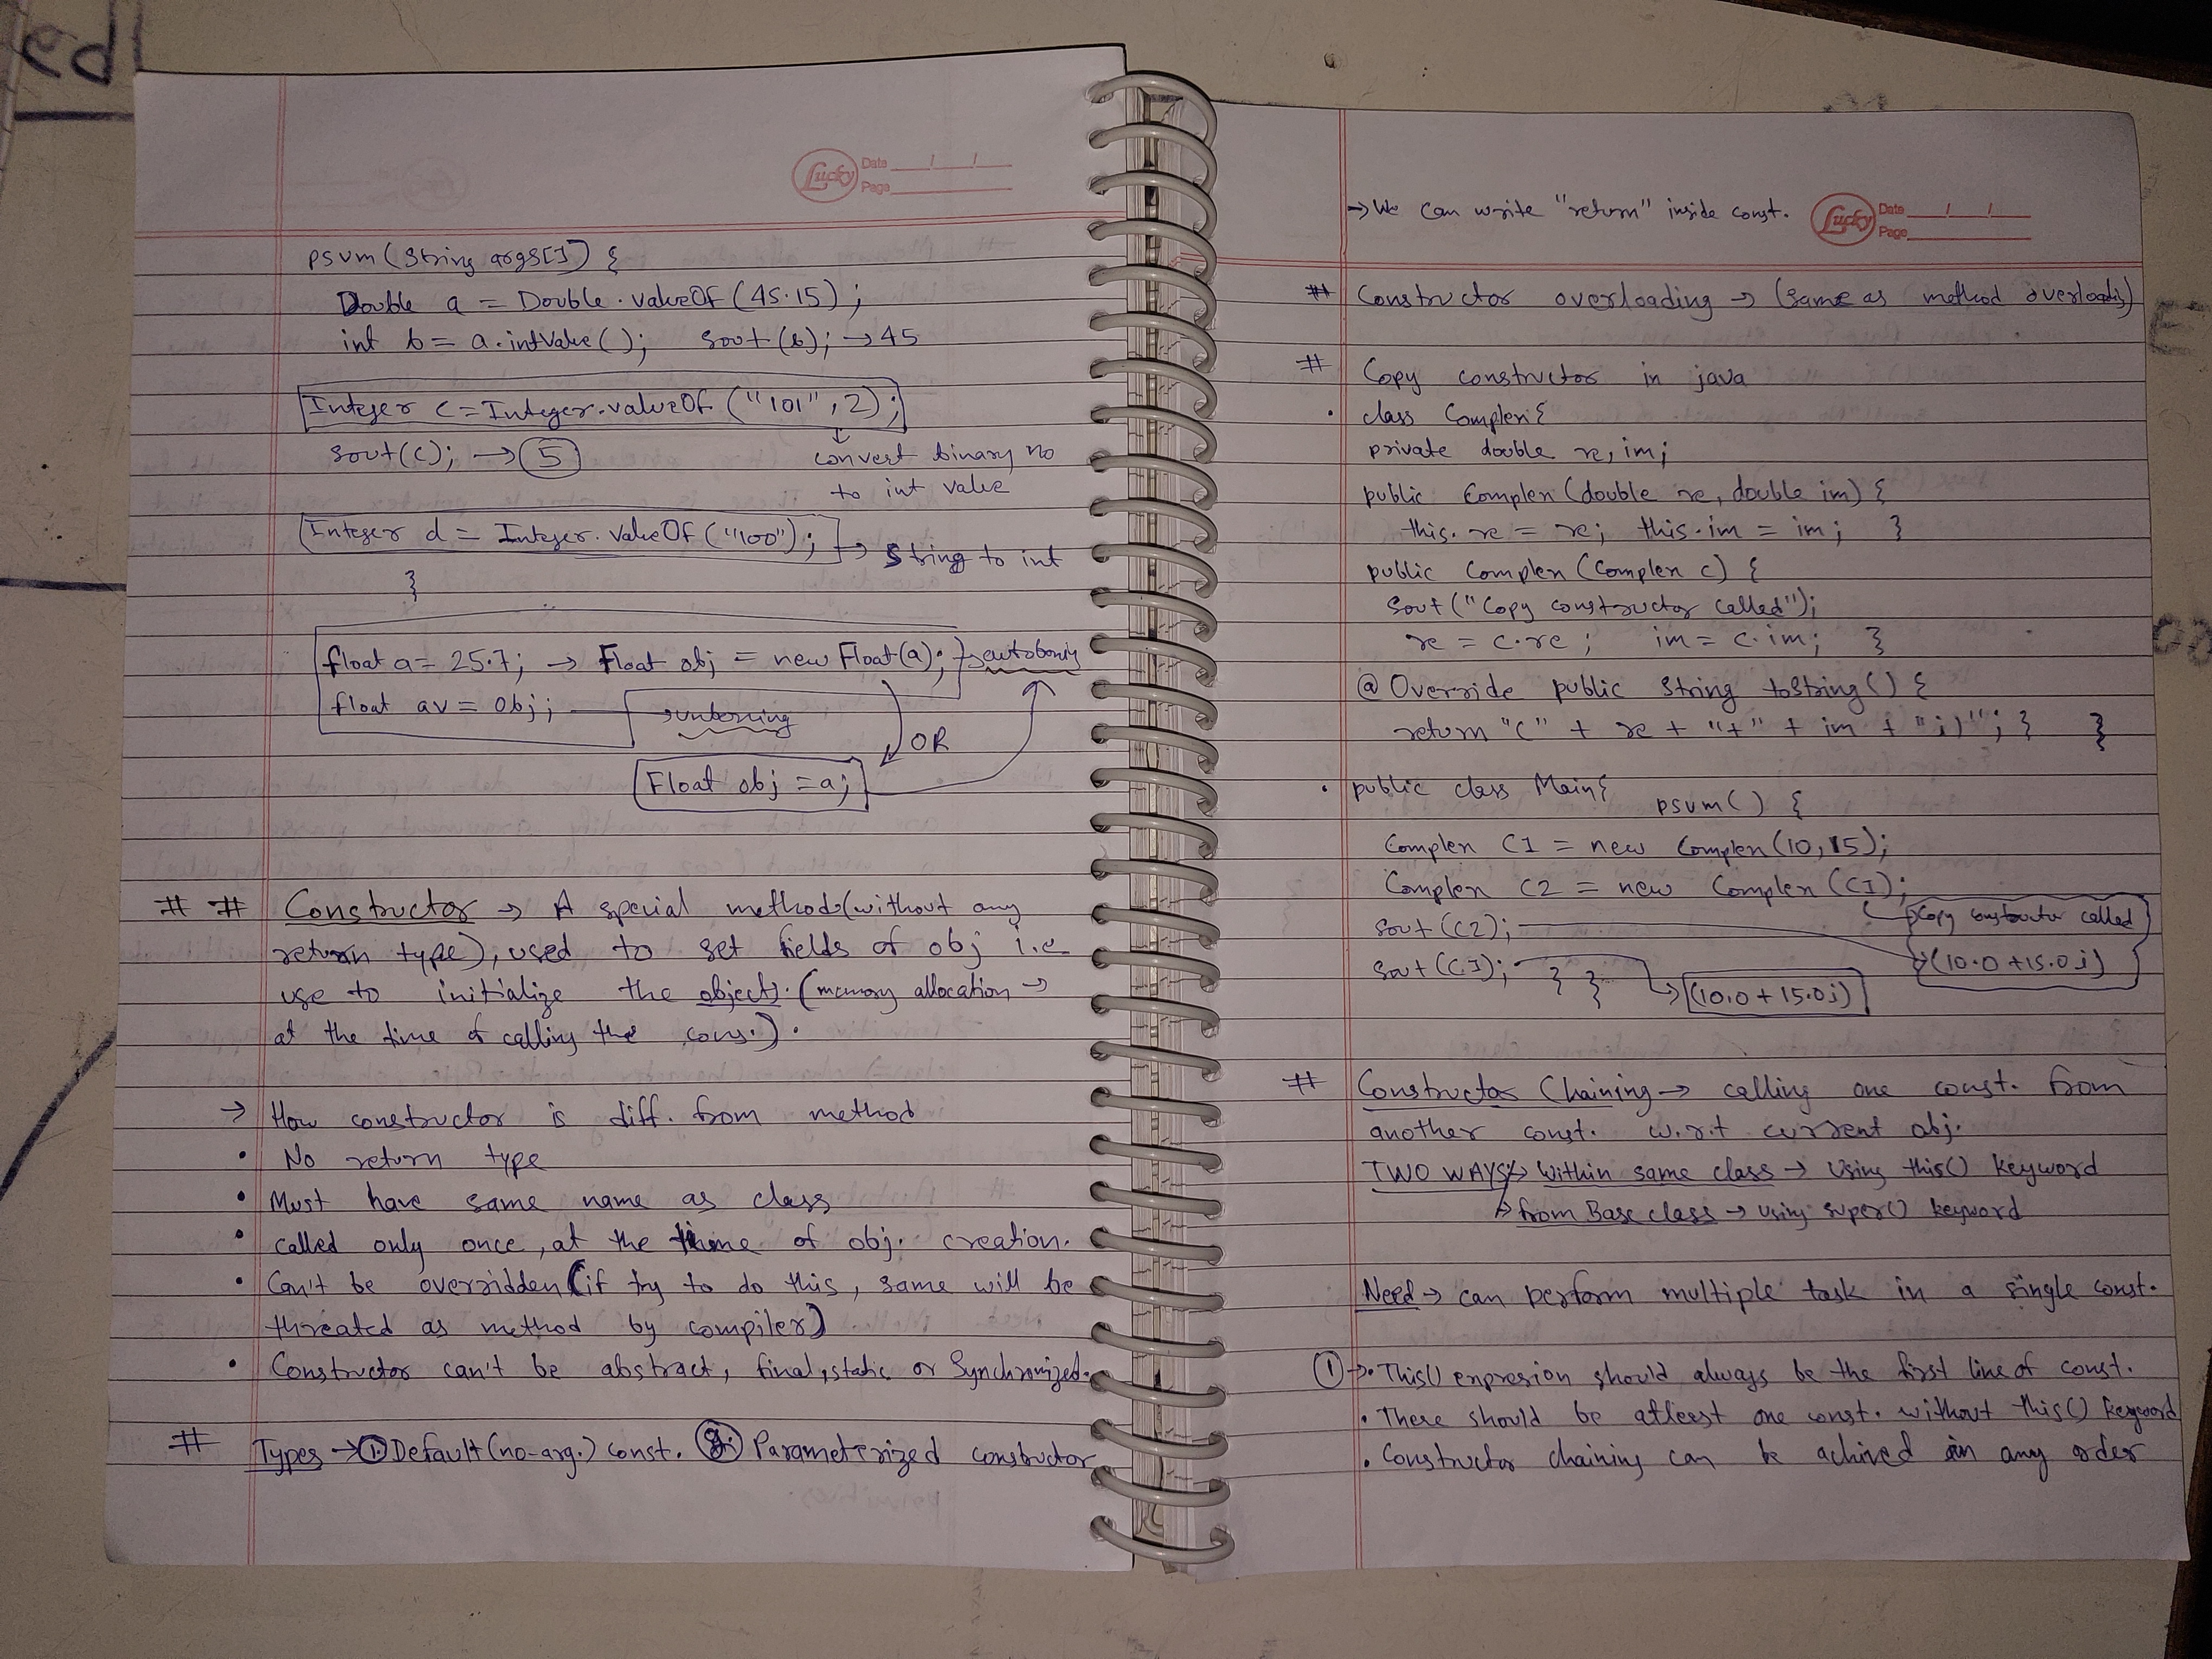 ed
Lucky Date / /
Page
psvm (String args[]) {
Double a = Double.valueOf (45.15);
int b = a.intValue(); sout (b); → 45
Integer c = Integer.valueOf ("101", 2);
sout(c); → 5
convert binary no
to int value
Integer d = Integer.valueOf ("100"); → String to int
}
float a = 25.7; → Float obj = new Float(a); → autoboxing
float av = obj; → unboxing
OR
Float obj = a;
# # Constructor → A special method (without any
return type), used to set fields of obj i.e
use to initialize the objects. (memory allocation →
at the time of calling the cons.).
→ How constructor is diff. from method
• No return type
• Must have same name as class
• Called only once, at the time of obj. creation.
• Can't be overridden (if try to do this, same will be
threated as method by compiler)
• Constructor can't be abstract, final, static or Synchronized.
# Types → 1. Default (no-arg.) const. 2. Parameterized constructor
→ We can write "return" inside const.
Lucky Date / /
Page
# Constructor overloading → (same as method overloading)
# Copy constructor in java
• class Complex {
private double re, im;
public Complex (double re, double im) {
this.re = re; this.im = im; }
public Complex (Complex c) {
sout ("Copy constructor called");
re = c.re; im = c.im; }
@ Override public String toString() {
return "(" + re + "+" + im + "i)"; } }
• public class Main { psvm () {
Complex C1 = new Complex (10, 15);
Complex C2 = new Complex (C1);
Copy constructor called
sout (C2);
(10.0 + 15.0i)
sout (C1); } }
(10.0 + 15.0i)
# Constructor Chaining → calling one const. from
another const. w.r.t current obj.
TWO WAYS → Within same class → Using this() keyword
→ from Base class → using super() keyword
Need → can perform multiple task in a single const.
1 → • This() expresion should always be the first line of const.
• There should be atleast one const. without this() keyword
• Constructor chaining can be achived in any order